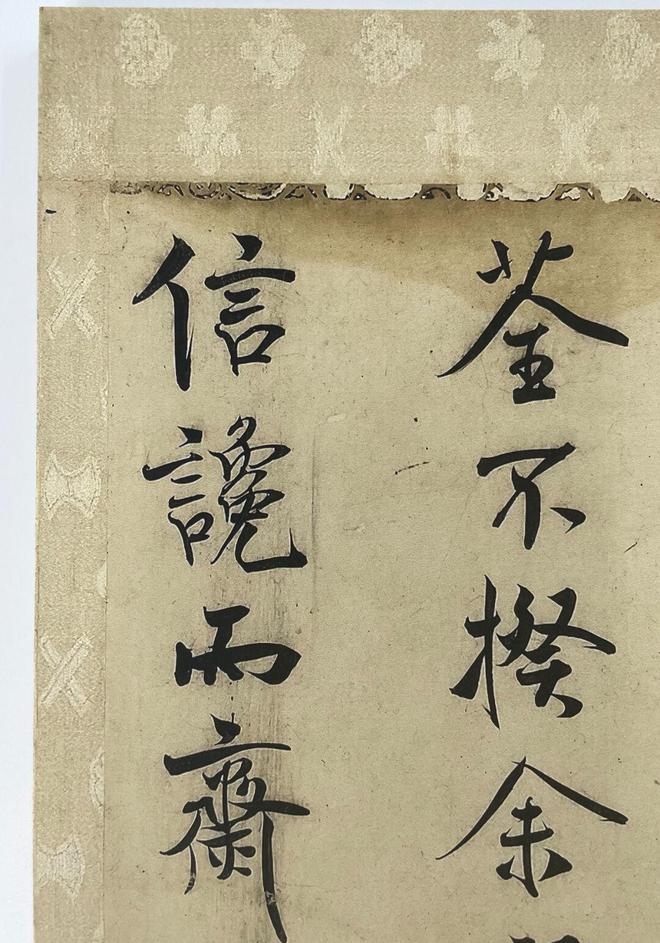 荃不揆余
信讒而齋